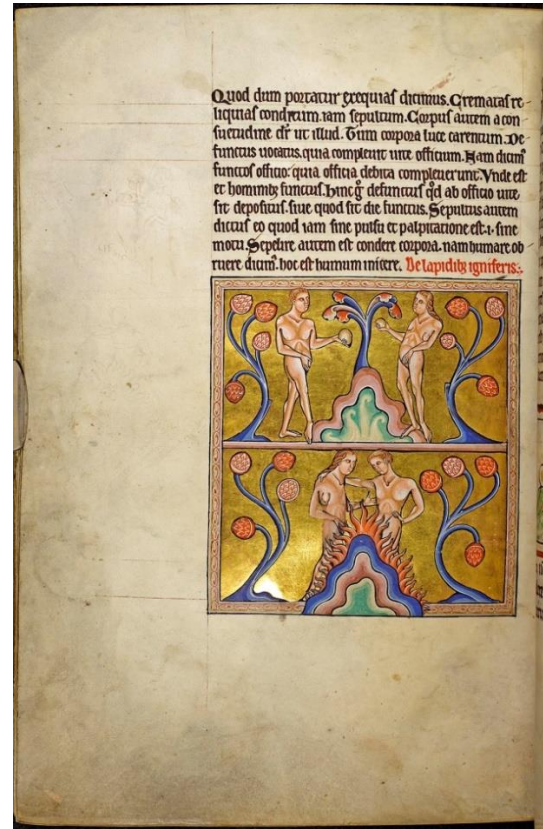 Quod dum portatur exequias dicimus. Crematas re
liquias conditum. iam sepultum. Corpus autem a con
suetudine dr̄ ut illud. Tum corpora luce carentum. De
functus uocatus. quia compleuit uite officium. Nam dicimꝰ
functos officio. quia officia debita compleuerunt. Vnde est
et honoribꝫ functus. hinc ḡ defunctus qd ab officio uite
sit depositus. siue quod sit die functus. Sepultus autem
dictus eo quod iam sine pulsu et palpitatione est .i. sine
motu. Sepelire autem est condere corpora. nam humare ob
ruere dicimꝰ. hoc est humum inicere. De lapidibꝫ igniferis.